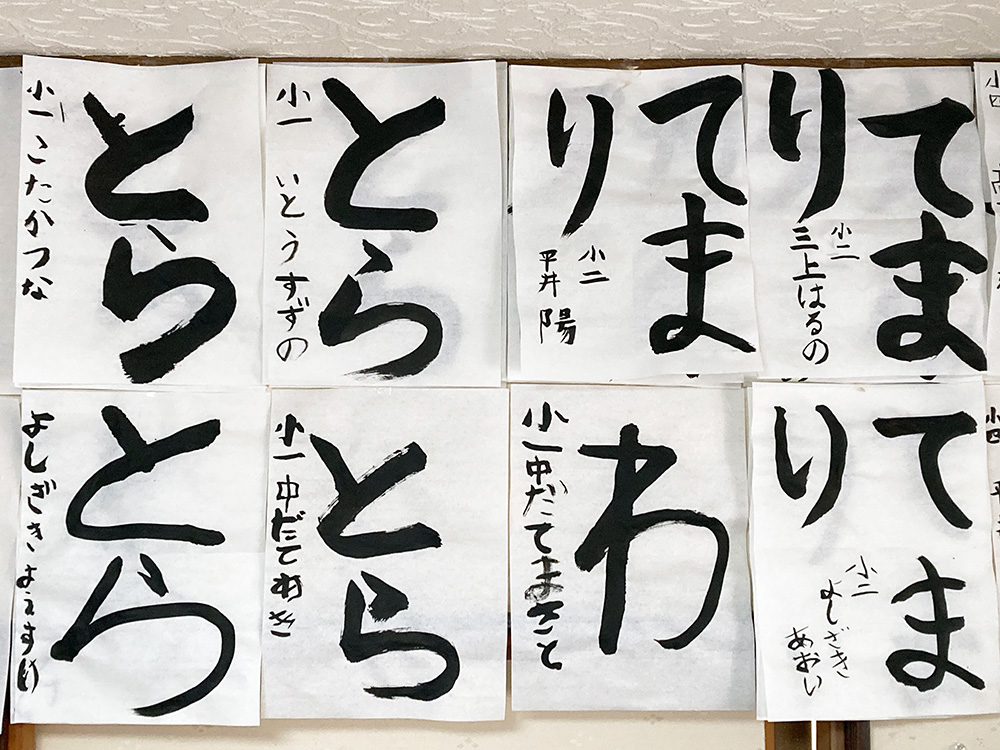 とら
小一 こたかつな
とら
小一 いとうすずの
てま
り
小二
平井 陽
てま
り
小二
三上はるの
小四
とら
よしざき
とら
小一 中だて
わ
小一 中だてまさと
てま
り
小二
よしざき
あおい
小四